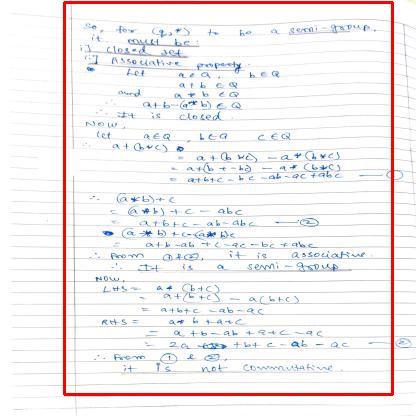 So, for (Q,*) to be a semi-group,
it must be:
i] Closed set
ii] Associative property
Let a∈Q, b∈Q
a+b∈Q
and a*b∈Q
∴ a+b-(a*b)∈Q
∴ It is closed.
NOW,
Let a∈Q, b∈Q c∈Q
∴ a+(b*c)
= a+(b*c) - a*(b*c)
= a+(b+-bc) - a*(b*c)
= a+b+c-bc-ab-ac+abc — ①
∴ (a*b)+c
= (a*b)+c-abc
= a+b+c-ab-abc — ②
(a*b)+c-(a*b)c
= a+b-ab+c-ac-bc+abc
∴ From ①&②, it is associative.
∴ It is a semi-group
NOW,
LHS = a*(b+c)
= a+(b+c) - a(b+c)
= a+b+c-ab-ac
RHS = a*b+a*c
= a+b-ab+a+c-ac
= 2a +b+c-ab-ac — ②
∴ From ① & ②,
it is not commutative.